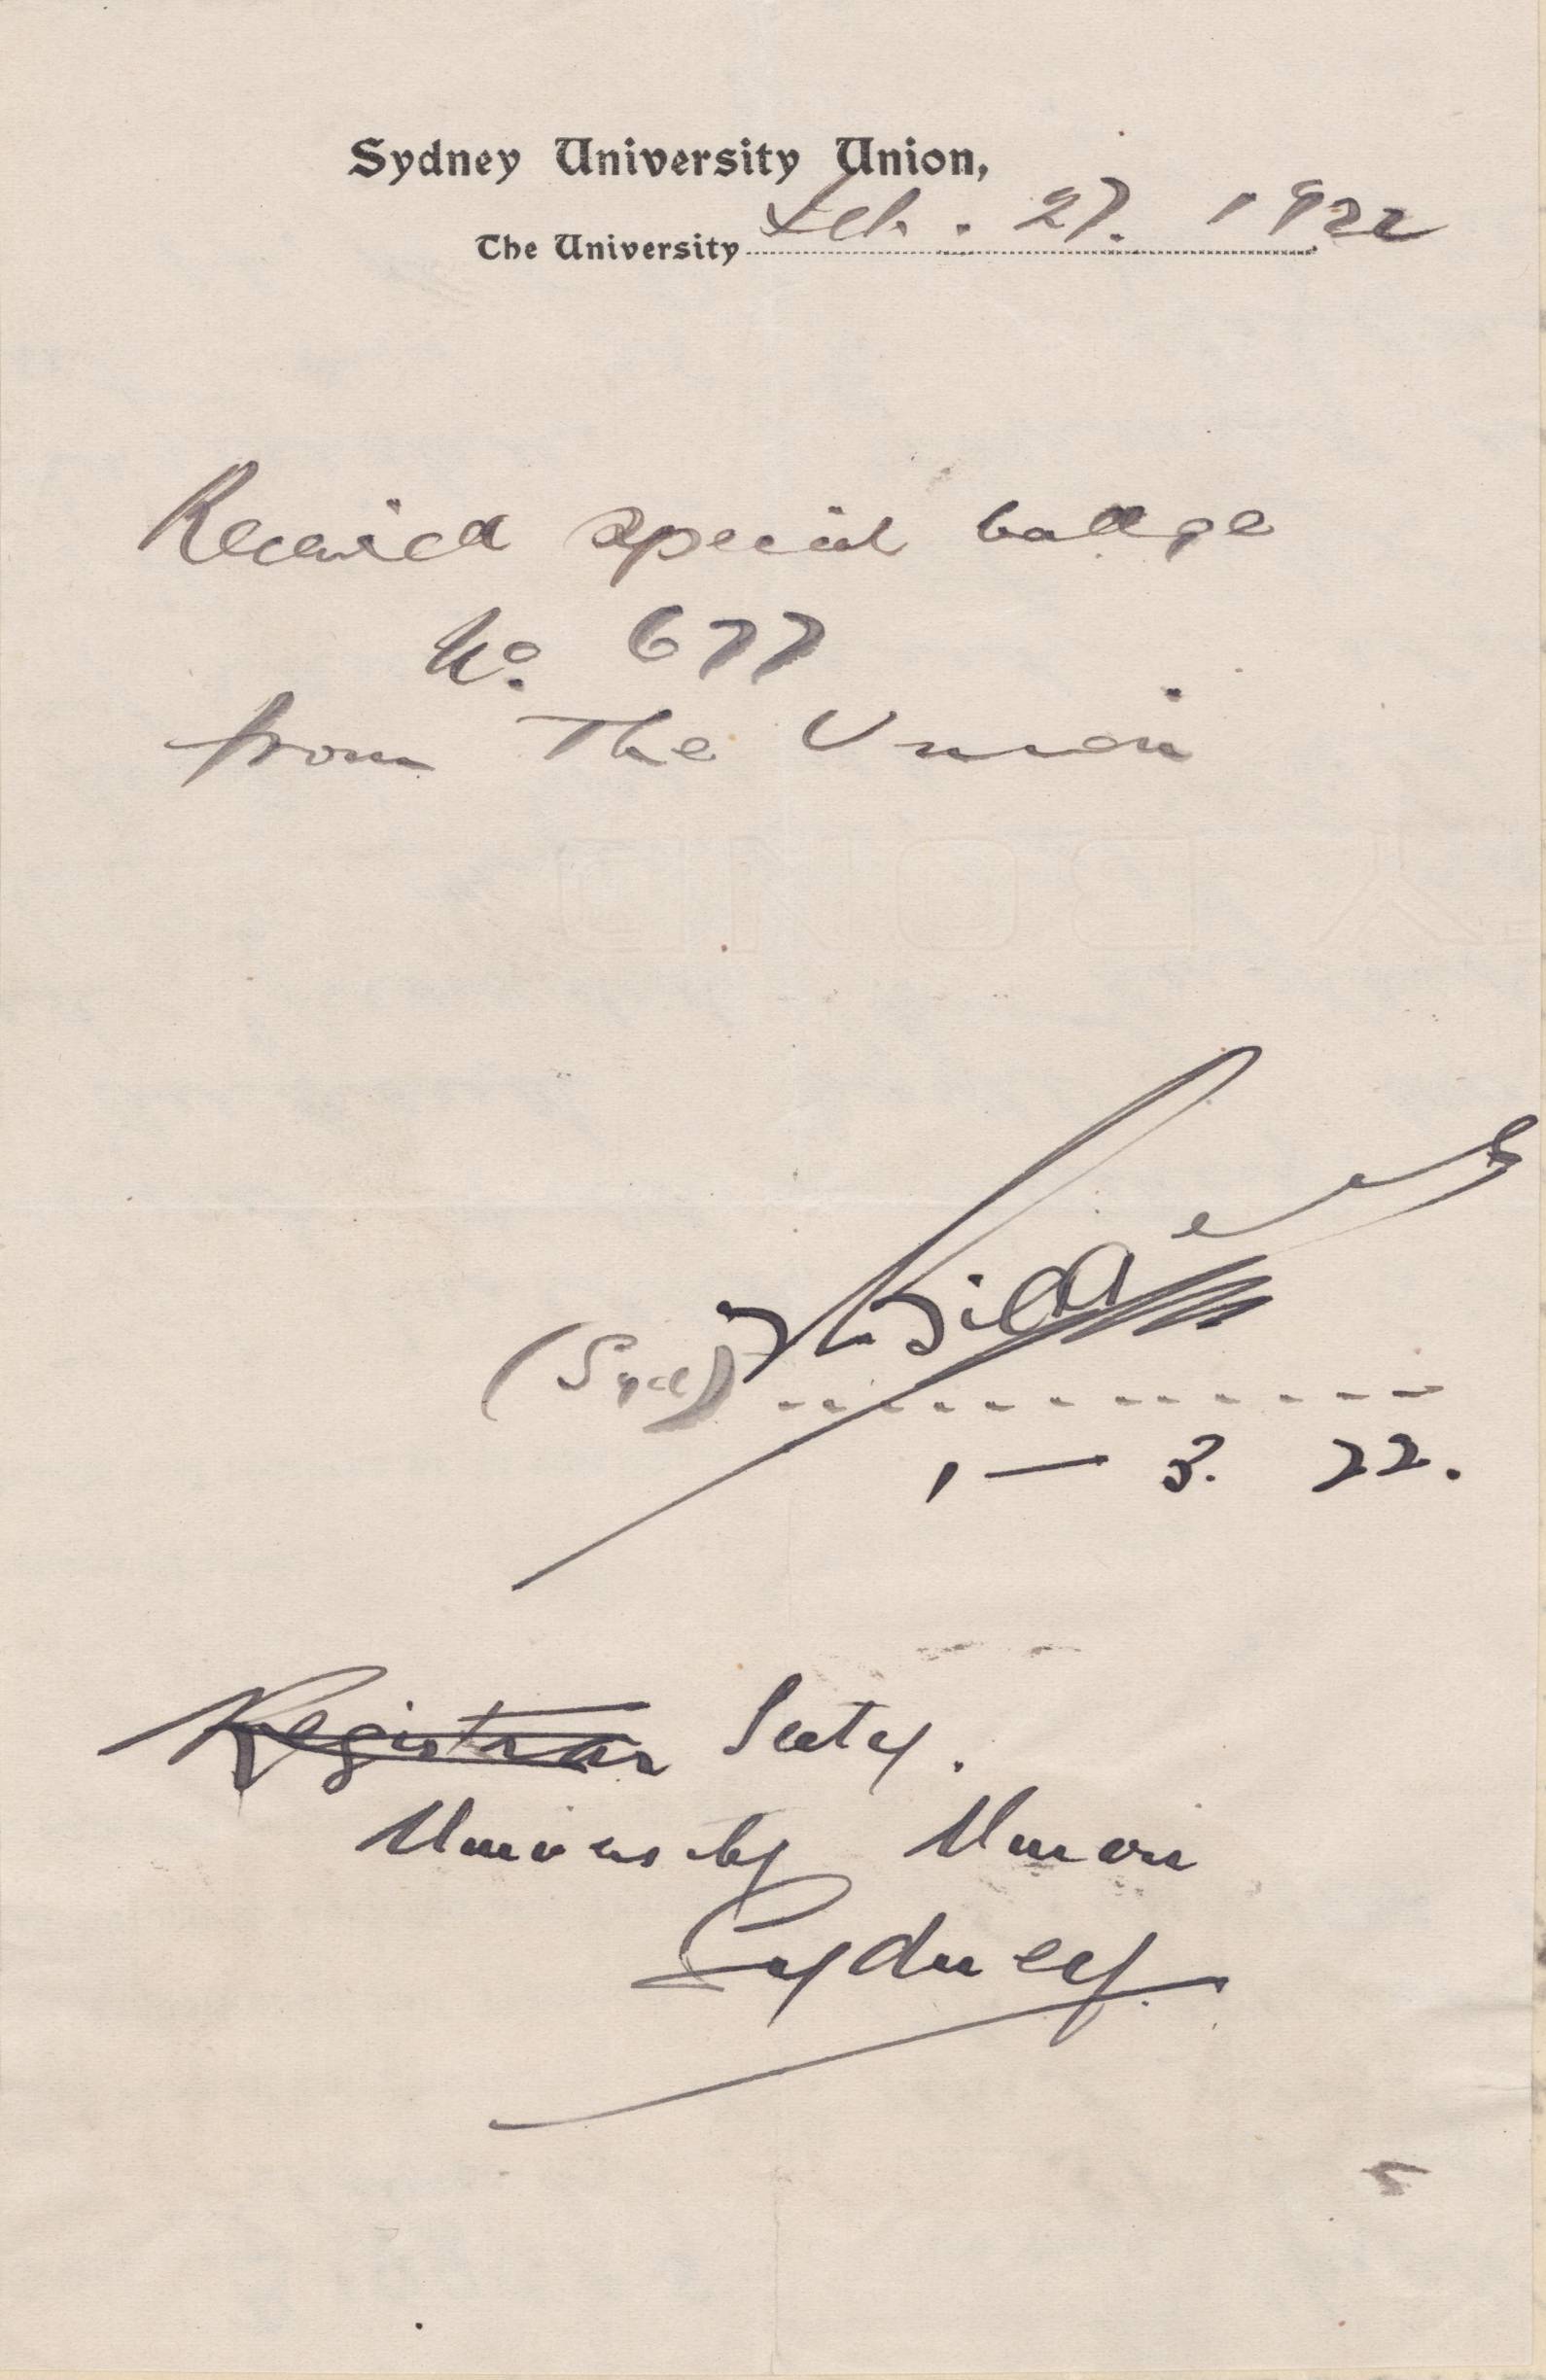 Sydney University Union,
The University Feb. 27. 1922
Received special badge
No. 677
from The Union
(Sgd)
1 — 3. 22.
Registrar Secty.
University Union
Sydney
Y BOND